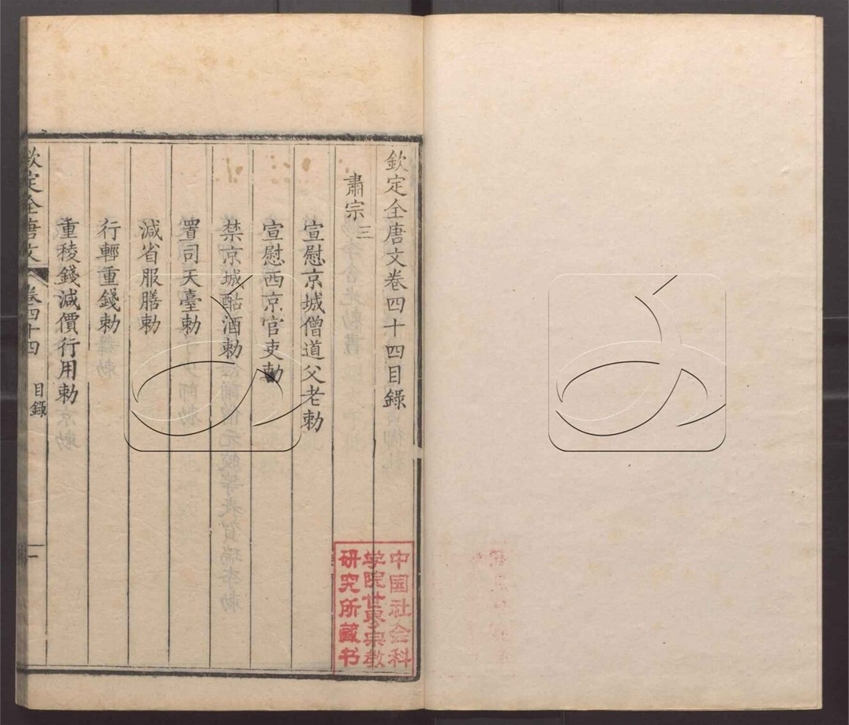 欽定全唐文卷四十四目錄
肅宗三
宣慰京城僧道父老勅
宣慰西京官吏勅
禁京城酤酒勅
置司天臺勅
減省服膳勅
行輕重錢勅
重稜錢減價行用勅
欽定全唐文 卷四十四 目錄 一
中国社会科
学院世界宗教
研究所藏书